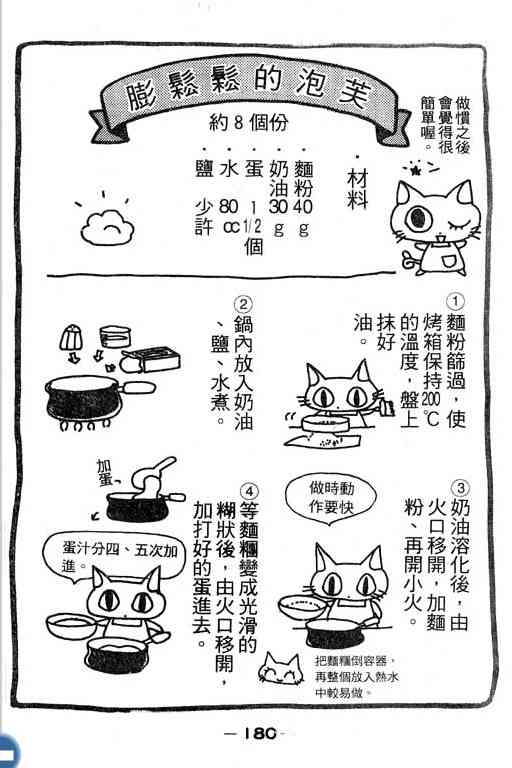 膨鬆鬆的泡芙
約8個份
做慣之後
會覺得很
簡單喔。
．材料
．麵粉40g
．奶油30g
．蛋1 1/2個
．水80cc
．鹽少許
①麵粉篩過，使
烤箱保持200℃
的溫度，盤上
抹好
油。
②鍋內放入奶油
、鹽、水煮。
③奶油溶化後，由
火口移開，加麵
粉、再開小火。
做時動
作要快
把麵糰倒容器，
再整個放入熱水
中較易做。
④等麵糰變成光滑的
糊狀後，由火口移開，
加打好的蛋進去。
加蛋、
蛋汁分四、五次加
進。
—180-